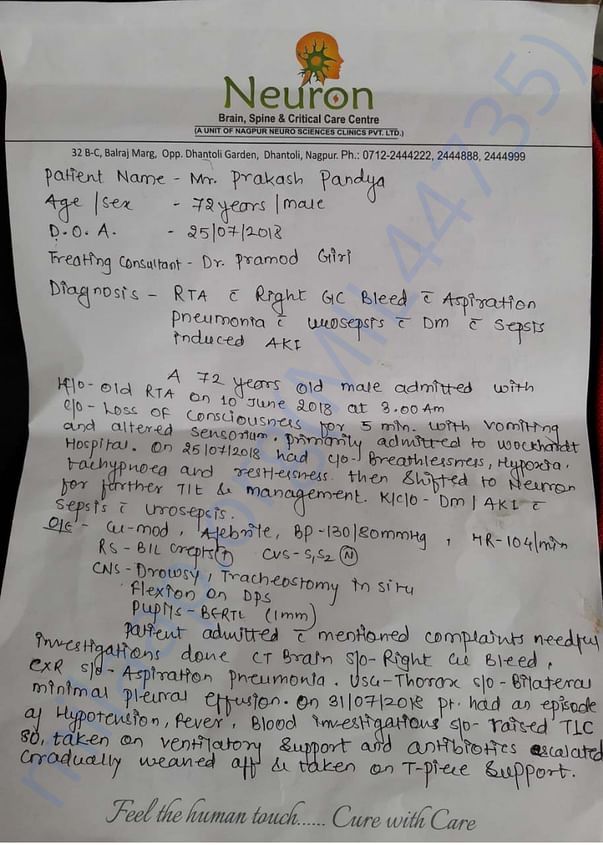 Neuron
Brain, Spine & Critical Care Centre
(A UNIT OF NAGPUR NEURO SCIENCES CLINICS PVT. LTD.)
32 B-C, Balraj Marg, Opp. Dhantoli Garden, Dhantoli, Nagpur. Ph.: 0712-2444222, 2444888, 2444999
Patient Name - Mr. Prakash Pandya
Age / sex - 72 years / male
D.O.A. - 25/07/2018
Treating Consultant - Dr. Pramod Giri
Diagnosis - RTA c̄ Right GC Bleed c̄ Aspiration
pneumonia c̄ urosepsis c̄ Dm c̄ Sepsis
induced AKI
A 72 years old male admitted with
H/o - old RTA on 10 June 2018 at 3.00 Am
c/o - Loss of consciousness for 5 min. with vomiting
and altered sensorium. primarily admitted to wockhardt
Hospital. On 25/07/2018 had c/o - Breathlessness, Hypoxia,
tachypnoea and restlessness. then shifted to Neuron
for further T/t & management. K/c/o - Dm / AKI c̄
sepsis c̄ urosepsis.
O/E - Afebrile, BP - 130/80mmHg, HR - 104/min
RS - B/L crepts (+) CVS - S1S2 (N)
CNS - Drowsy, Tracheostomy in situ
flexion on DPS
Pupils - BERTL (1mm)
patient admitted c̄ mentioned complaints needful
investigations done CT Brain s/o - Right Bleed,
CXR s/o - Aspiration pneumonia. USG - Thorax s/o - Bilateral
minimal pleural effusion. On 31/07/2018 pt. had an episode
of Hypotension, fever, Blood investigations s/o - raised TLC
so, taken on ventilatory support and antibiotics escalated
Gradually weaned off & taken on T-piece support.
Feel the human touch...... Cure with Care